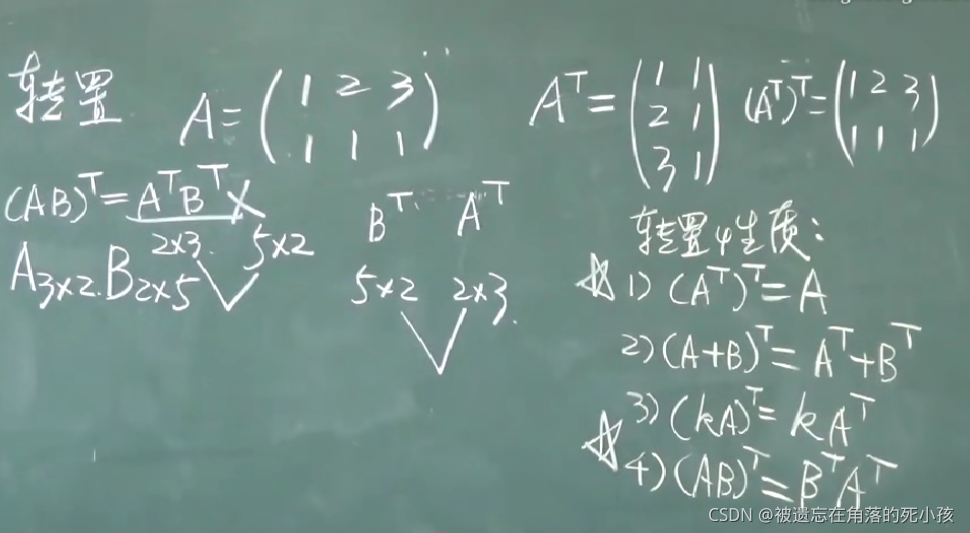 转置 A = ( 1 2 3
1 1 1 )
Aᵀ = ( 1 1
2 1
3 1 )
(Aᵀ)ᵀ = ( 1 2 3
1 1 1 )
(AB)ᵀ = AᵀBᵀ ×
2×3 5×2
A₃ₓ₂ B₂ₓ₅
Bᵀ Aᵀ
5×2 2×3
转置性质：
☆ 1) (Aᵀ)ᵀ = A
2) (A+B)ᵀ = Aᵀ+Bᵀ
3) (kA)ᵀ = kAᵀ
☆ 4) (AB)ᵀ = BᵀAᵀ
CSDN @被遗忘在角落的死小孩